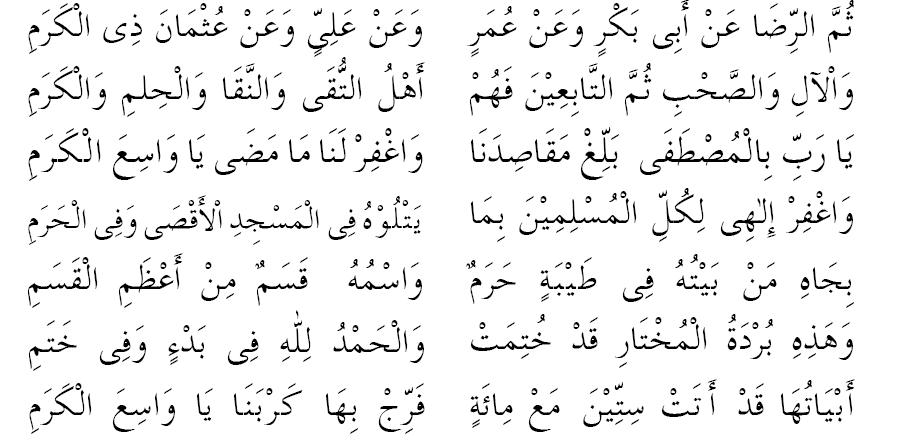 ثُمَّ الرِّضَا عَنْ أَبِى بَكْرٍ وَعَنْ عُمَرٍ وَعَنْ عَلِيٍّ وَعَنْ عُثْمَانَ ذِى الْكَرَمِ
وَاْلآلِ وَالصَّحْبِ ثُمَّ التَّابِعِيْنَ فَهُمْ أَهْلُ التُّقَى وَالنَّقَا وَالْحِلمِ وَالْكَرَمِ
يَا رَبِّ بِالْمُصْطَفَى بَلِّغْ مَقَاصِدَنَا وَاغْفِرْ لَنَا مَا مَضَى يَا وَاسِعَ الْكَرَمِ
وَاغْفِرْ إِلٰهِى لِكُلِّ الْمُسْلِمِيْنَ بِمَا يَتْلُوْهُ فِى الْمَسْجِدِ اْلأَقْصَى وَفِى الْحَرَمِ
بِجَاهِ مَنْ بَيْتُهُ فِى طَيْبَةٍ حَرَمٌ وَاسْمُهُ قَسَمٌ مِنْ أَعْظَمِ الْقَسَمِ
وَهَذِهِ بُرْدَةُ الْمُخْتَارِ قَدْ خُتِمَتْ وَالْحَمْدُ لِلّٰهِ فِى بَدْءٍ وَفِى خَتَمِ
أَبْيَاتُهَا قَدْ أَتَتْ سِتِّيْنَ مَعْ مِائَةٍ فَرِّجْ بِهَا كَرْبَنَا يَا وَاسِعَ الْكَرَمِ